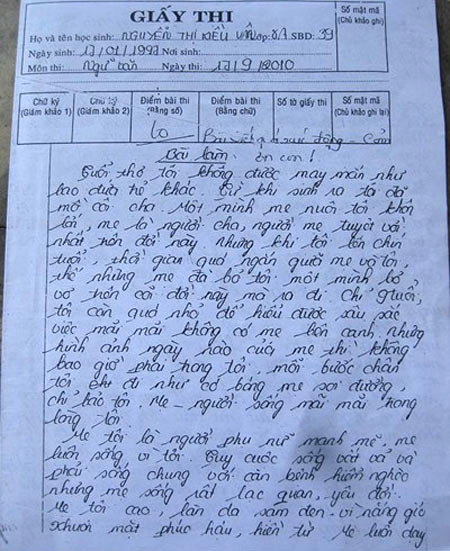 GIẤY THI
Số mật mã
(Chủ khảo ghi)
Họ và tên học sinh: NGUYỄN THỊ KIỀU VÂN Lớp: 8A SBD: 39
Ngày sinh: 17/01/1997 Nơi sinh:
Môn thi: Ngữ văn Ngày thi: 17/9/2010
Chữ ký
(Giám khảo 1)
Chữ ký
(Giám khảo 2)
Điểm bài thi
(Bằng số)
Điểm bài thi
(Bằng chữ)
Số tờ giấy thi
Số mật mã
(Chủ khảo ghi lại)
10
Bài viết quá xúc động - Cảm
ơn con!
Bài làm
Tuổi thơ tôi không được may mắn như
bao đứa trẻ khác. Từ khi sinh ra tôi đã
mồ côi cha. Một mình mẹ nuôi tôi khôn
lớn, mẹ là người cha, người mẹ tuyệt vời
nhất trên đời này. Nhưng khi tôi lên chín
tuổi, thời gian quá ngắn người mẹ và tôi,
thế nhưng mẹ đã bỏ tôi một mình bơ
vơ trên cõi đời này mà ra đi. Chỉ 9 tuổi,
tôi còn quá nhỏ để hiểu được sâu sắc
việc mãi mãi không có mẹ bên cạnh, nhưng
hình ảnh ngày nào của mẹ thì không
bao giờ phai trong tôi, mỗi bước chân
tôi khi đi như có bóng mẹ soi đường,
chỉ bảo tôi. Mẹ - người sống mãi mãi trong
lòng tôi.
Mẹ tôi là người phụ nữ mạnh mẽ, mẹ
luôn sống vì tôi. Tuy cuộc sống vất vả và
phải sống chung với căn bệnh hiểm nghèo
nhưng mẹ sống rất lạc quan, yêu đời.
Mẹ tôi cao, làn da sạm đen vì nắng gió
khuôn mặt phúc hậu, hiền từ. Mẹ luôn dạy